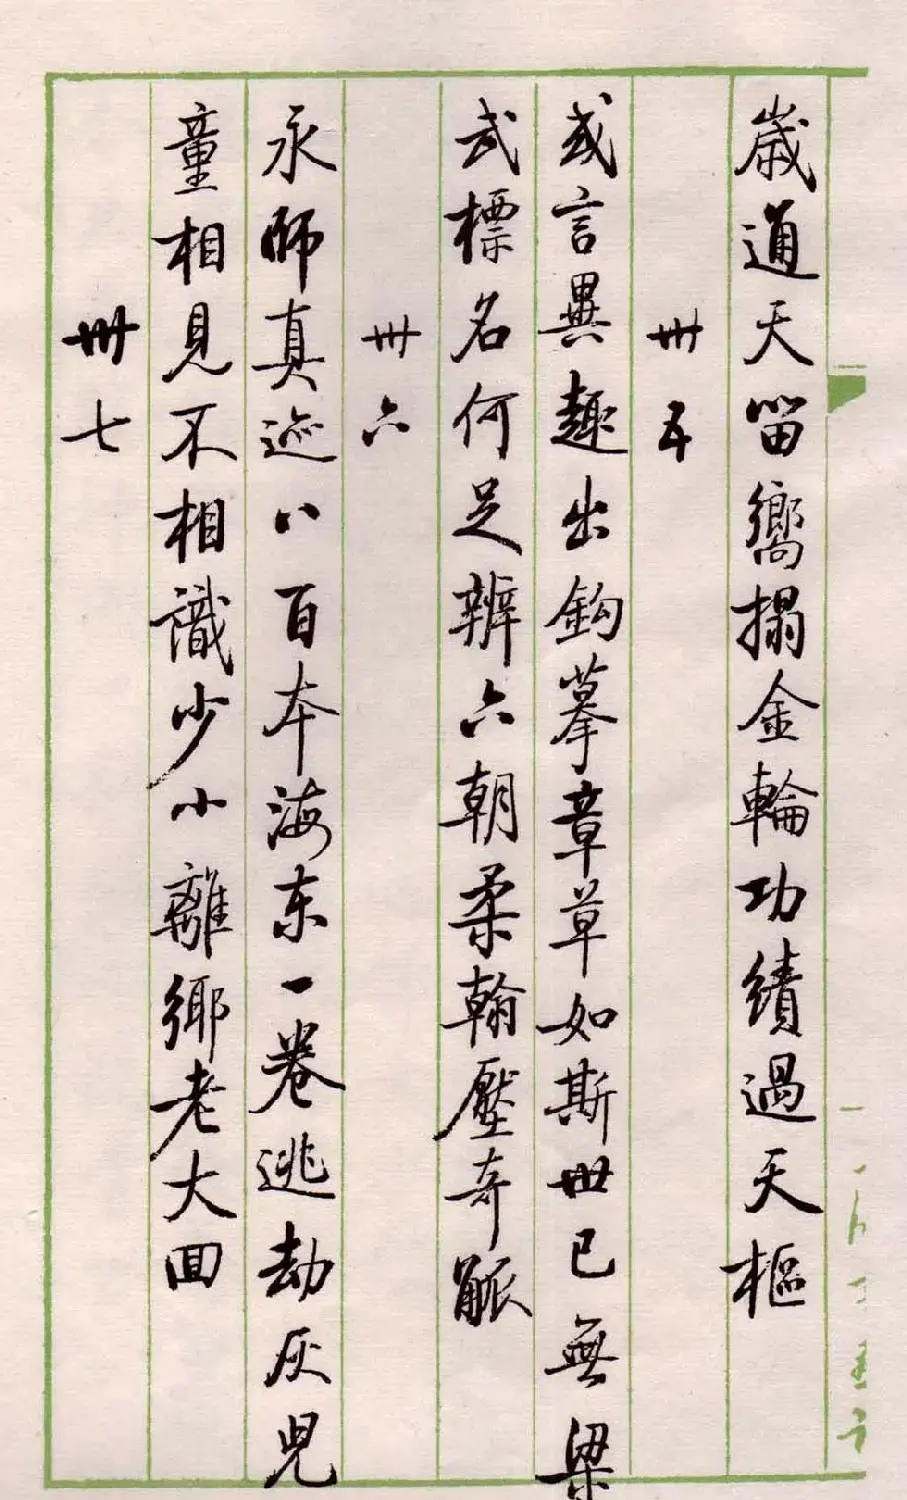 歲通天留嚮搨金輪功績過天樞
卅五
或言異趣出鈎摹章草如斯世已無梁
武標名何足辨六朝柔翰壓奇觚
卅六
永師真迹八百本海东一卷逃劫灰兒
童相見不相識少小離鄉老大回
卅七